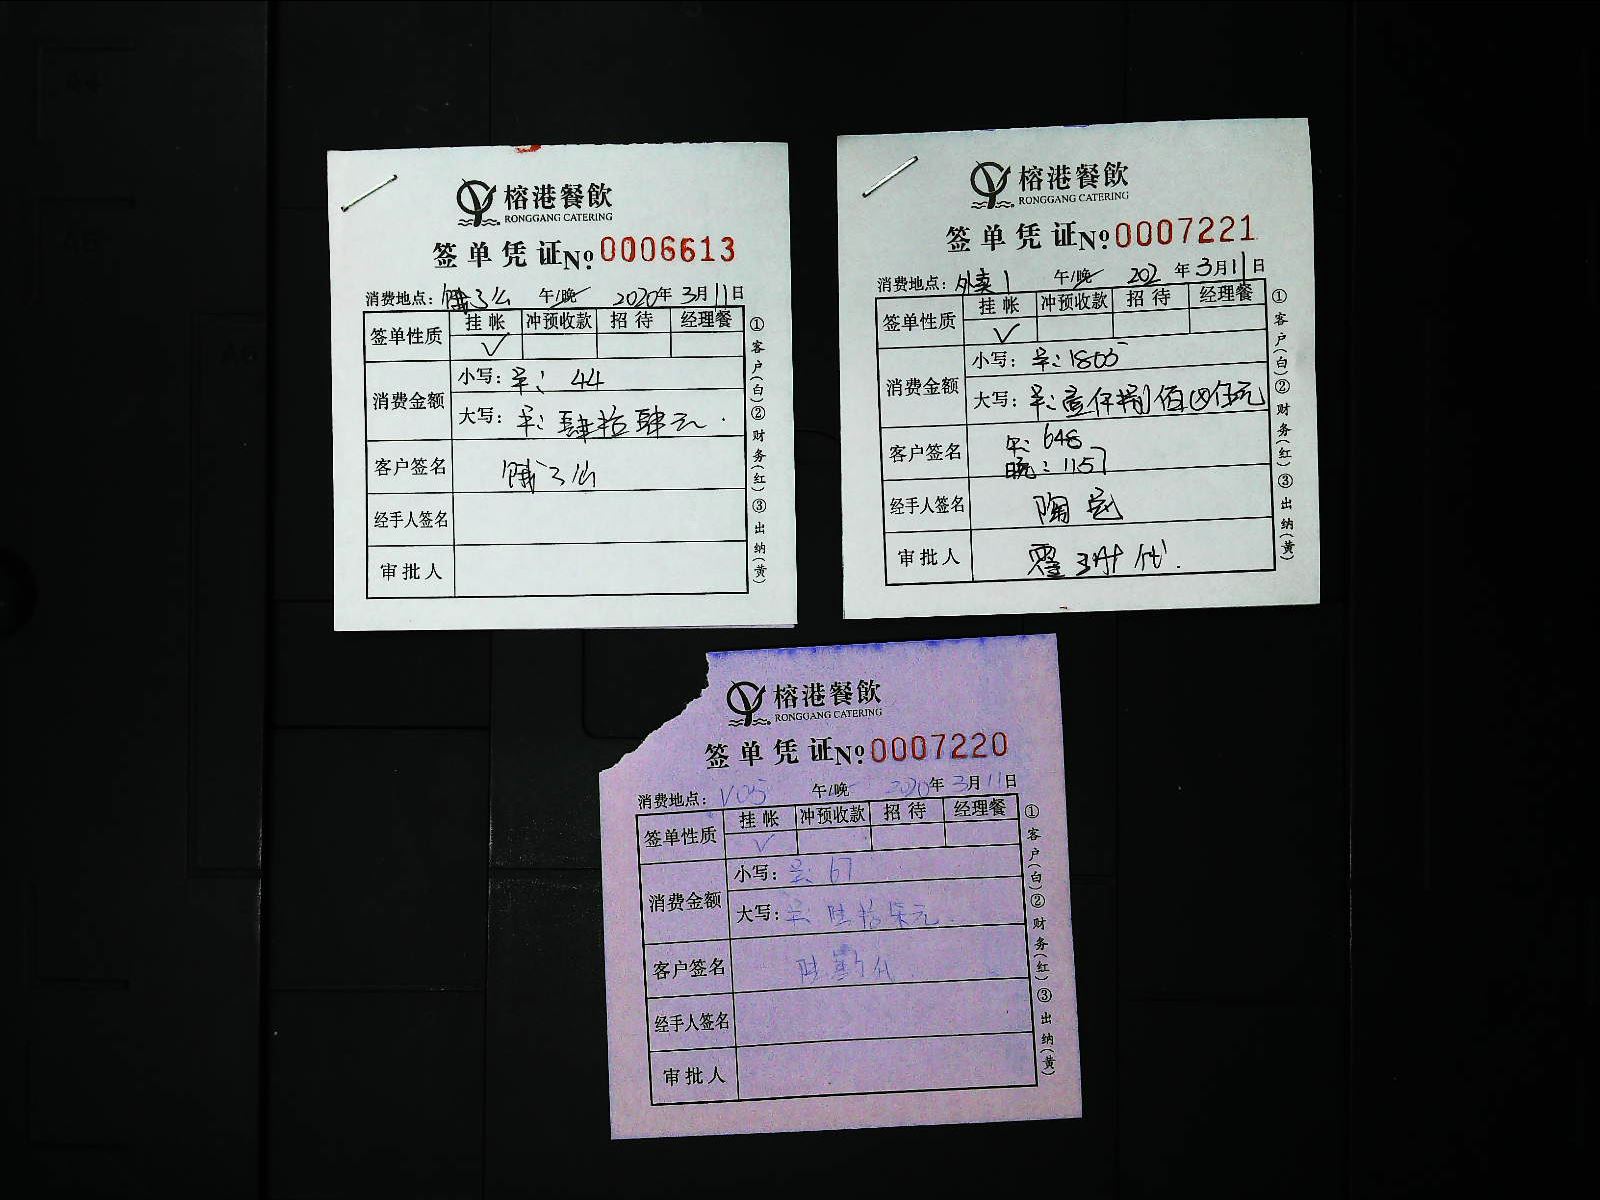 榕港餐飲
RONGGANG CATERING
签单凭证 No. 0006613
消费地点：饿了么 午/晚 2020年3月11日
签单性质 挂帐 冲预收款 招待 经理餐
✓
消费金额 小写：¥：44
大写：¥：肆拾肆元.
客户签名 饿了么
经手人签名
审批人
①客户(白)②财务(红)③出纳(黄)
榕港餐飲
RONGGANG CATERING
签单凭证 No. 0007221
消费地点：外卖1 午/晚 202 年3月11日
签单性质 挂帐 冲预收款 招待 经理餐
✓
消费金额 小写：¥：1805
大写：¥：壹仟捌佰 元
客户签名 午：648
晚：1157
经手人签名 陶
审批人 霍 代.
①客户(白)②财务(红)③出纳(黄)
榕港餐飲
RONGGANG CATERING
签单凭证 No. 0007220
消费地点：V05 午/晚 2020年3月11日
签单性质 挂帐 冲预收款 招待 经理餐
✓
消费金额 小写：¥：67
大写：¥：陆拾柒元.
客户签名 陆 代
经手人签名
审批人
①客户(白)②财务(红)③出纳(黄)